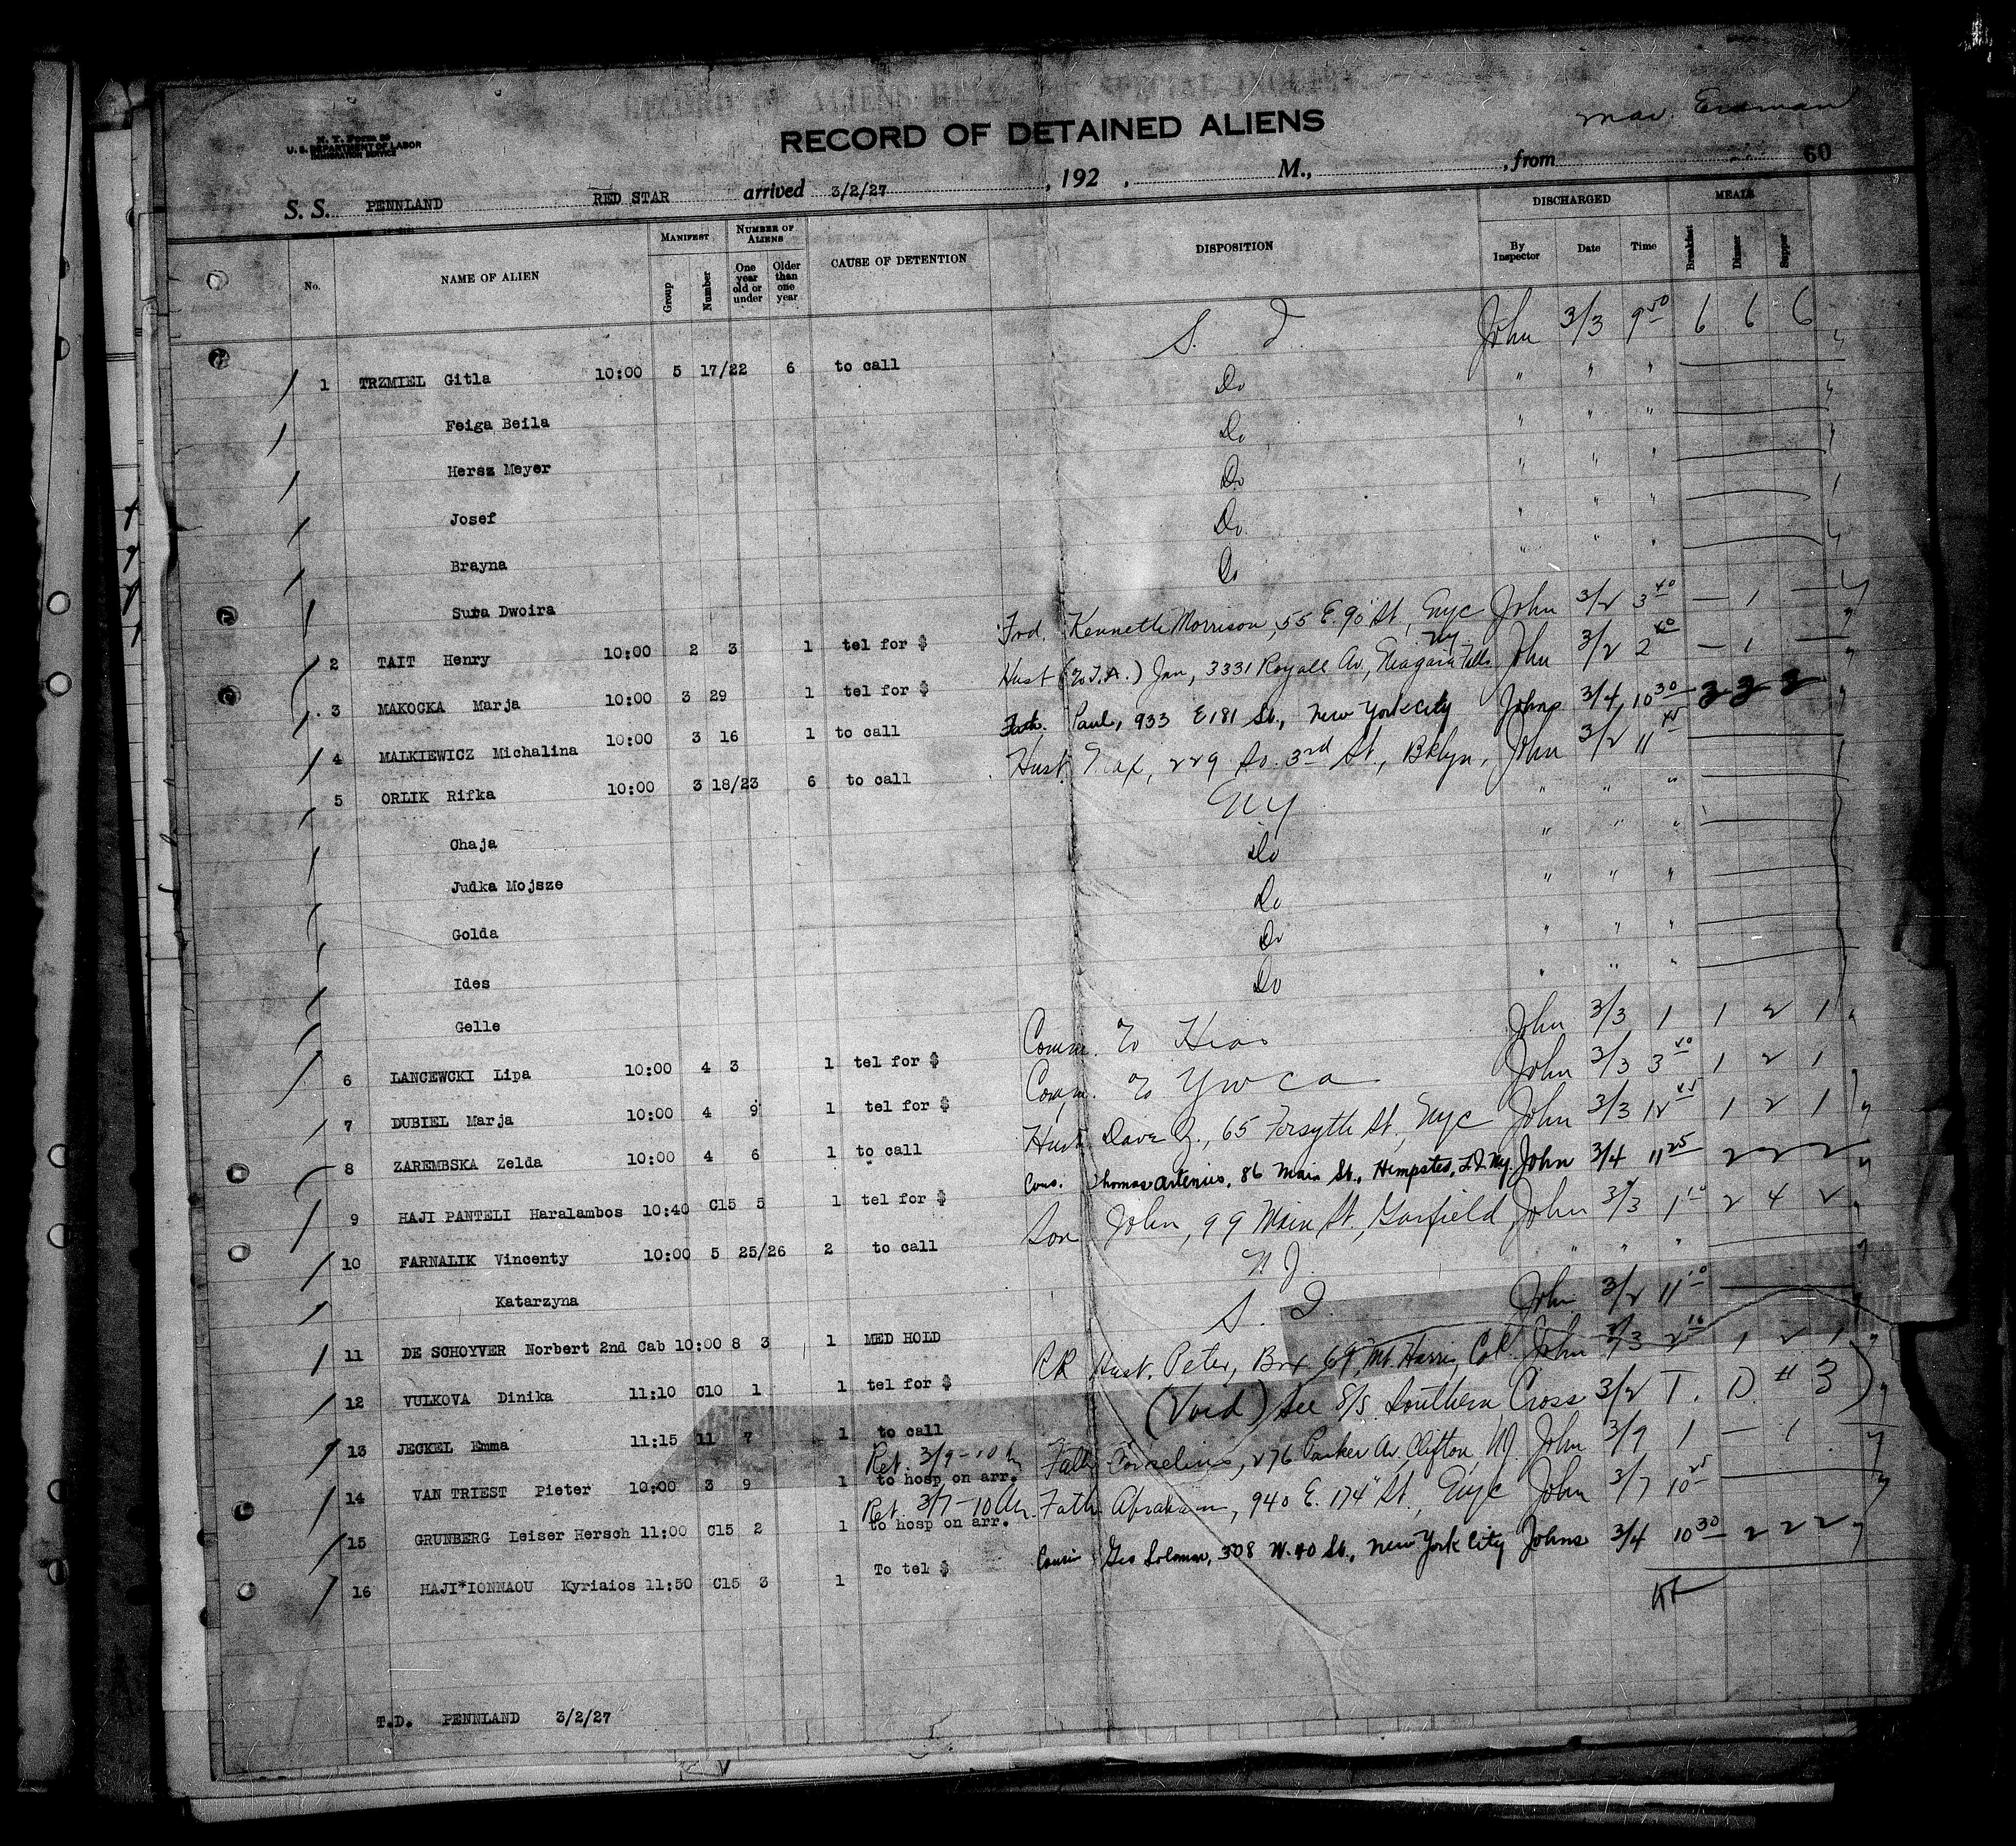 RECORD OF ALIENS HELD SPECIAL INQUIRY
N. Y. Form 30
U. S. DEPARTMENT OF LABOR
IMMIGRATION SERVICE
RECORD OF DETAINED ALIENS
S. S. PENNLAND RED STAR arrived 3/2/27 , 192 , M., , from 60
No. NAME OF ALIEN MANIFEST NUMBER OF ALIENS CAUSE OF DETENTION DISPOSITION DISCHARGED MEALS
Group Number One year old or under Older than one year By Inspector Date Time Breakfast Dinner Supper
1 TRZMIEL Gitla 10:00 5 17/22 6 to call S. I. John 3/3 9 50 6 6 6
Feiga Beila Do " " "
Hersz Meyer Do " " "
Josef Do " " "
Brayna Do " " "
Sura Dwoira Do " " "
2 TAIT Henry 10:00 2 3 1 tel for $ Frd. Kenneth Morrison, 55 E. 90 St, Nyc John 3/2 3 40 — 1 —
3 MAKOCKA Marja 10:00 3 29 1 tel for $ Hust (to T.A.) Jan, 3331 Royall Av, Niagara Falls NY. John 3/2 2 40 — 1 —
4 MALKIEWICZ Michalina 10:00 3 16 1 to call Fath. Paul, 933 E 181 St., New York city Johns 3/4 10 30 3 3 3
5 ORLIK Rifka 10:00 3 18/23 6 to call Hust Max, 229 So. 3rd St., Bklyn, John 3/2 11 45
Chaja NY " " "
Judka Mojsze Do " " "
Golda Do " " "
Ides Do " " "
Gelle Do " " "
6 LANCEWCKI Lipa 10:00 4 3 1 tel for $ Comm. to Hias John 3/3 1 1 2 1
7 DUBIEL Marja 10:00 4 9 1 tel for $ Comm. to YWCA John 3/3 3 40 1 2 1
8 ZAREMBSKA Zelda 10:00 4 6 1 to call Hust Dave Z., 65 Forsyth St, Nyc John 3/3 12 45 1 2 1
9 HAJI PANTELI Haralambos 10:40 C15 5 1 tel for $ Cous. Thomas Artenius, 86 Main St., Hempsted, L.I. Ny. John 3/4 11 25 2 2 2
10 FARNALIK Vincenty 10:00 5 25/26 2 to call Son John, 99 Main St, Garfield, John 3/3 1 10 2 4 2
Katarzyna N J. " " "
11 DE SCHOYVER Norbert 2nd Cab 10:00 8 3 1 MED HOLD S. I. John 3/2 11 10
12 VULKOVA Dinika 11:10 C10 1 1 tel for $ RR Hust. Peter, Box 69, Mt. Harris, Col. John 3/3 2 10 1 2 1
13 JECKEL Emma 11:15 11 7 1 to call (Void) See S/S Southern Cross 3/2 T. D # 3)
14 VAN TRIEST Pieter 10:00 3 9 1 Ret. 3/9-10 to hosp on arr. Fath Cornelius, 276 Parker Av. Clifton, NJ. John 3/9 1 — 1
15 GRUNBERG Leiser Hersch 11:00 C15 2 1 Ret. 3/7-10 to hosp on arr. Fath Abraham, 940 E. 174 St, Nyc John 3/7 10 25
16 HAJI*IONNAOU Kyriaios 11:50 C15 3 1 To tel $ Cousin Geo Soloman, 308 W. 40 St., New York City Johns 3/4 10 30 2 2 2
T.D. PENNLAND 3/2/27